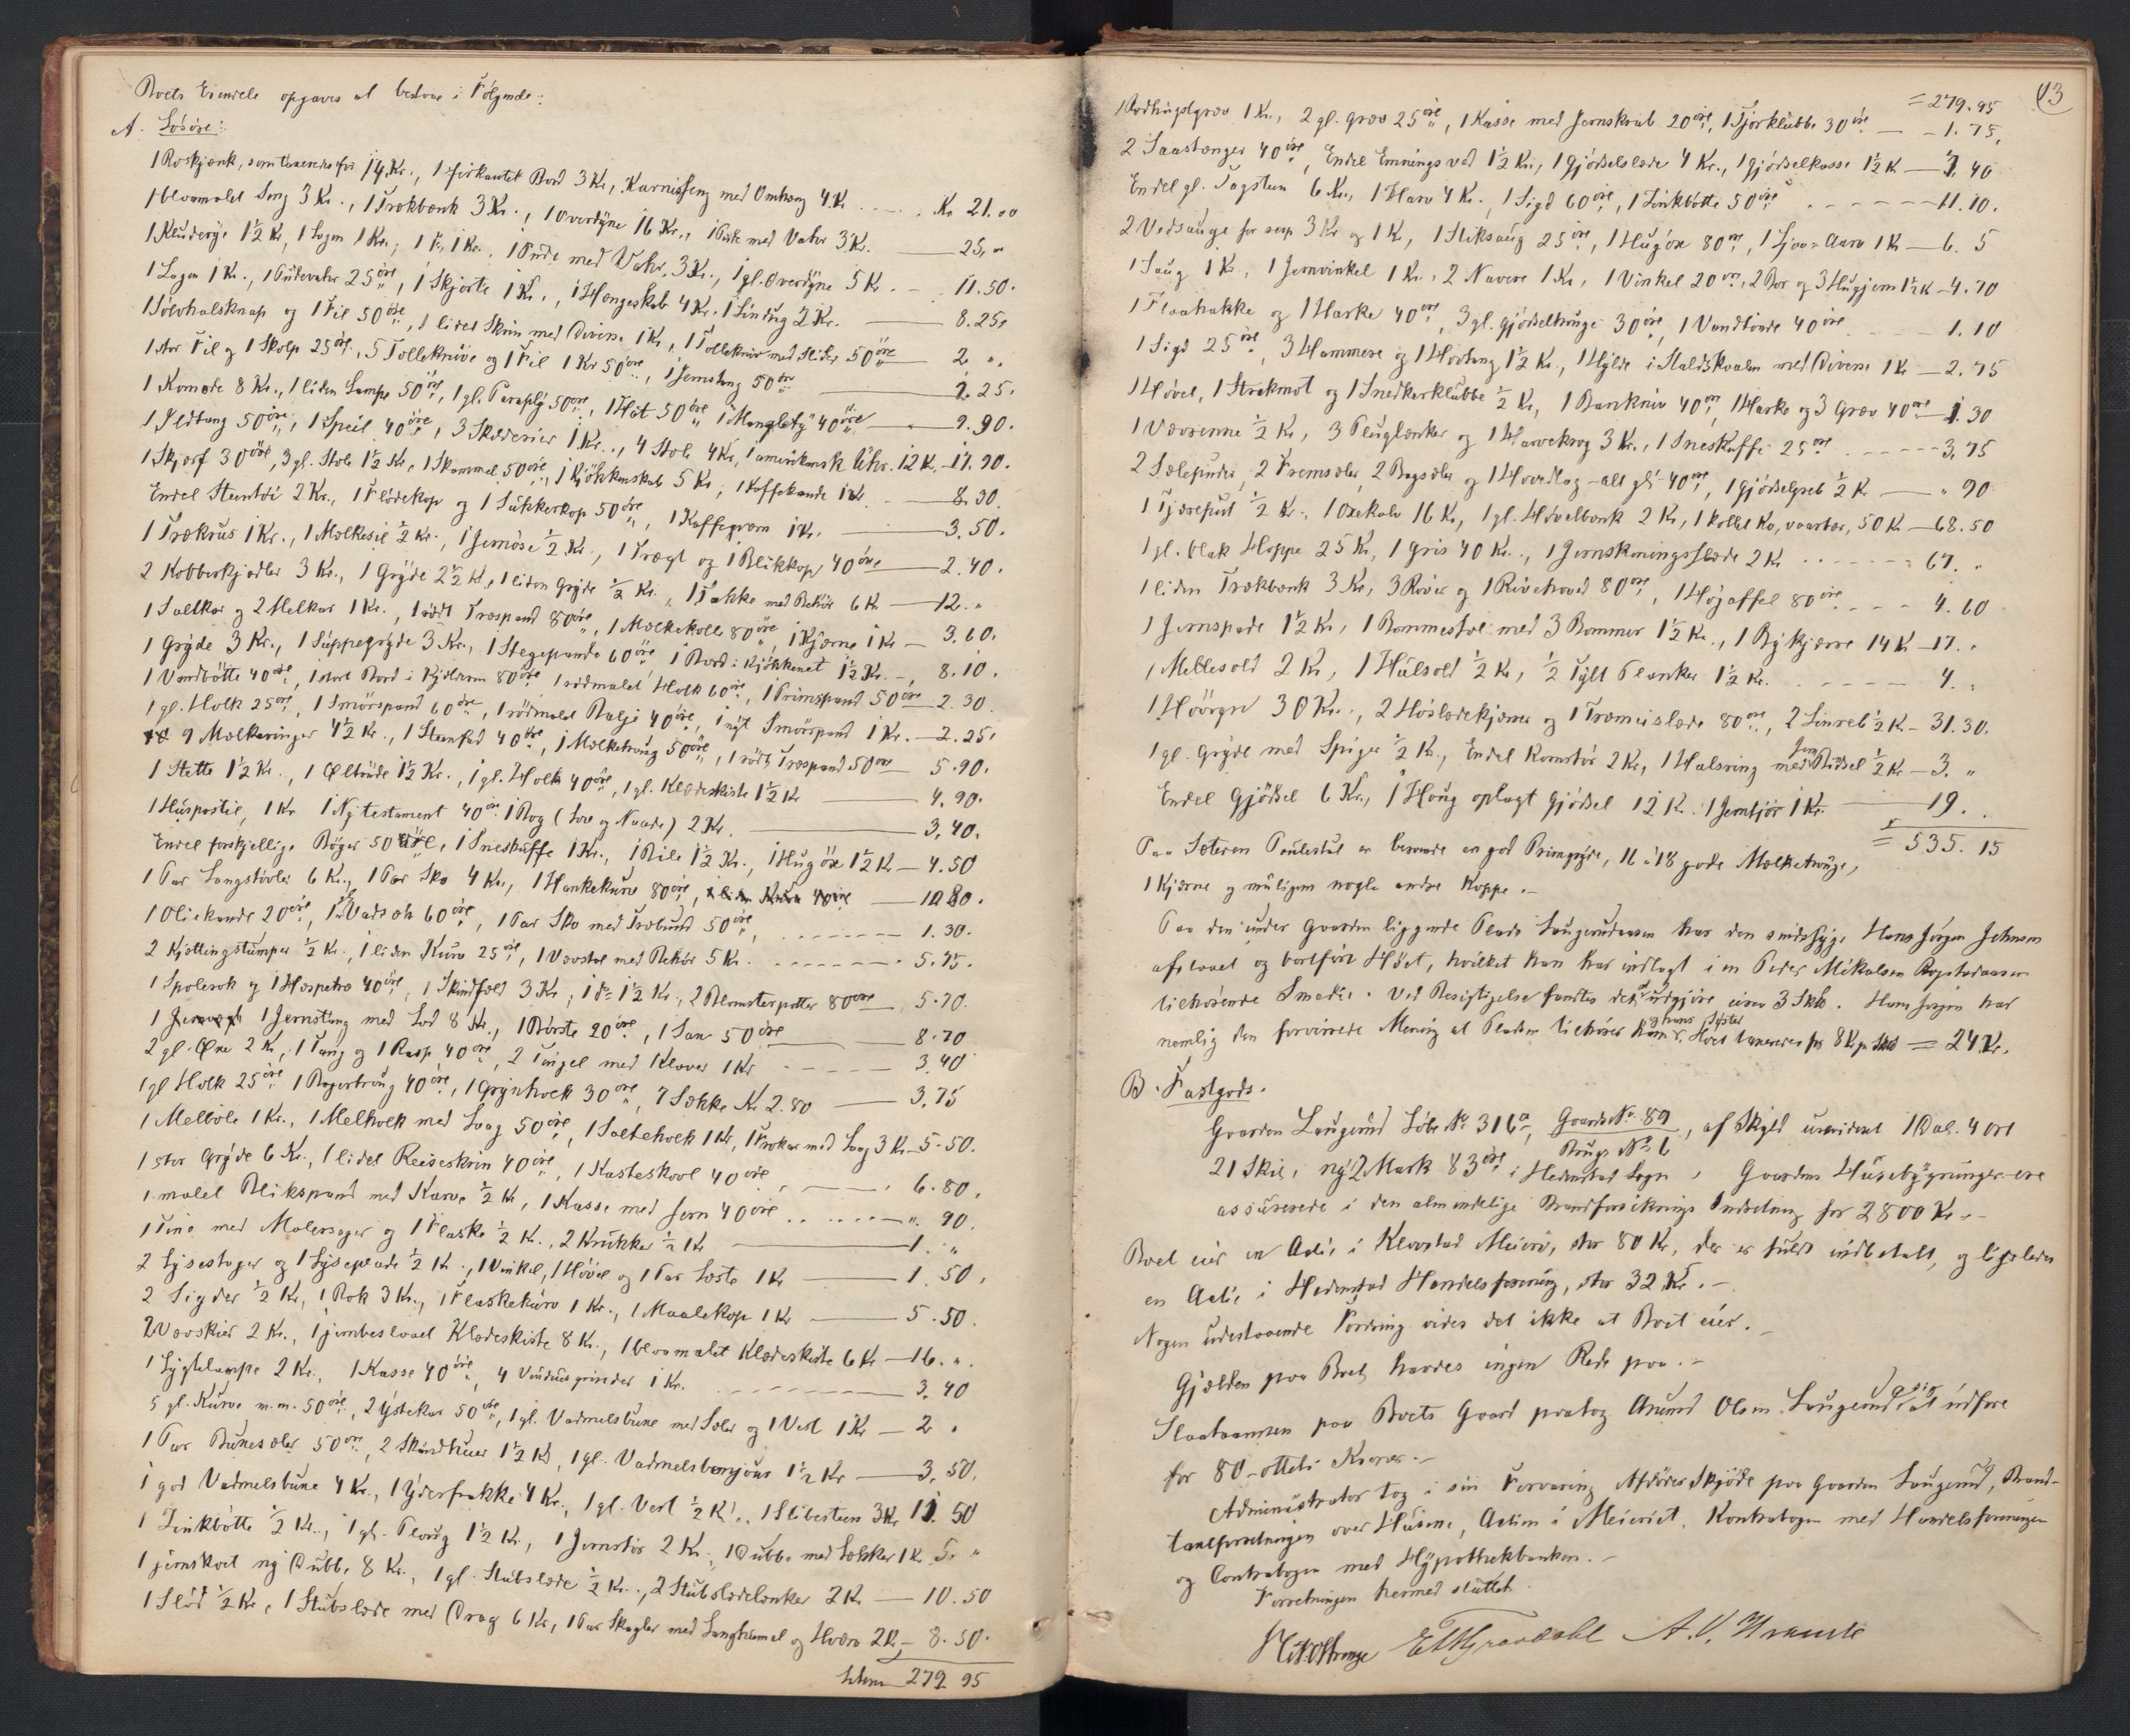 Boets Eiendele opgaves at bestaae i Følgende:
A. Løsøre:
1 Roskjænk, som taxeredes for 14 Kr., 1 firkantet Bord 3 Kr., Karnisseng med Omhæng 4 Kr. Kr. 21.00
1 blaamalet Seng 3 Kr., 1 Trækbænk 3 Kr., 1 Overdyne 16 Kr., 1 med Vahr 3 Kr. 25,"
1 Kludery 1½ Kr., 1 Lagen 1 Kr., 1 Do 1 Kr., 1 Pude med Vahr 3 Kr., 1 gl. Overdyne 5 Kr. 11.50.
1 Lagen 1 Kr., 1 Pudevahr 25 øre, 1 Skjorte 1 Kr., 1 Hængeskab 4 Kr., 1 Lindug 2 Kr. 8.25,
1 Sølvhalsknap og 1 Fil 50 øre, 1 lidet Skrin med Divirse 1 Kr., 1 Tolleknív med Slider 50 øre 2 ".
1 stor Fil og 1 Skolp 25 øre, 5 Tolleknive og 1 Fil 1 Kr 50 øre, 1 Jernstang 50 øre 2.25.
1 Komode 8 Kr., 1 liden Lampe 50 øre, 1 gl. Paraply 50 øre, 1 Hat 50 øre, 1 "Mangletÿ" 40 øre 9.90.
1 Ildtang 50 øre, 1 Speil 40 øre, 3 Skilderier 1 Kr., 4 Stole 4 Kr., 1 amerikansk Uhr. 12 K. 17.90.
1 Skjærf 30 øre, 3 gl. Stole 1½ Kr., 1 Skammel 50 øre, 1 Kjøkkenskab 5 Kr., 1 Kaffekande 1 Kr 8.30.
Endel Steentøi 2 Kr., 1 Flødekop og 1 Sukkerkop 50 øre, 1 Kaffeqværn 1 Kr. 3.50.
1 Trækrus 1 Kr., 1 Mælkesil ½ Kr., 1 Jernøse ½ Kr., 1 Trægt og 1 Blikkop 40 øre 2.40.
2 Kobberkjedler 3 Kr., 1 Gryde 2½ Kr., 1 liden Gryde ½ Kr., 1 Takke med Rekve 6 Kr 12."
1 Saltkar og 2 Melkar 1 Kr., 1 rødt Træspand 80 øre, 1 Mælkekolle 80 øre, 1 Kjærne 1 Kr 3.60.
1 Gryde 3 Kr., 1 Suppegryde 3 Kr., 1 Stegepande 60 øre, 1 Bord i Kjøkkenet 1½ Kr. 8.10.
1 Vandbøtte 40 øre, 1 stort Bord i Kjelderen 80 øre, 1 rødmalet Holk 60 øre, 1 Primspand 50 øre 2.30.
1 gl. Holk 25 øre, 1 Smørspand 60 øre, 1 rødmalet Balje 40 øre, 1 nyt Smørspand 1 Kr. 2.25,
9 Mælkeringer 4½ Kr., 1 Steenfad 40 øre, 1 Mælketraug 50 øre, 1 rødt Træspand 50 øre 5.90.
1 Stette 1½ Kr., 1 Øltønde 1½ Kr., 1 gl. Holk 40 øre, 1 gl. Klædeskiste 1½ Kr 4.90.
1 Huspostil, 1 Kr 1 Nytestament 40 øre 1 Bog (Lov og Naade) 2 Kr. 3.40.
Endel forskjellige Bøger 50 øre, 1 Sneskuffe 1 Kr., 1 Bile 1½ Kr., 1 Hugøxe 1½ Kr 4.50
1 Par Langstøvler 6 Kr., 1 Par Sko 4 Kr., 1 Hankekurv 80 øre, 1 liden Kurv 40 øre 10.80.
1 Oliekande 20 øre, 1 Vadsæk 60 øre, 1 Par Sko med Træbund 50 øre, 1.30.
2 Kjættingstumper ½ Kr., 1 liden Kurv 25 øre, 1 Vævstol med Rekve 5 Kr. 5.75.
1 Spolerok og 1 Hespetræ 40 øre, 1 Skindfæld 3 Kr., 1 do 1½ Kr., 2 Blomsterpotter 80 øre 5.70.
1 Jernstang med Lod 8 Kr., 1 Børste 20 øre, 1 Sax 50 øre 8.70
2 gl. Øxe 2 Kr., 1 Tang og 1 Rasp 40 øre, 2 Tøngel med Klaver 1 Kr 3.40
1 gl Holk 25 øre 1 Bagertraug 40 øre, 1 Grynholk 30 øre, 7 Sække Kr. 2.80 3.75
1 Melbøle 1 Kr., 1 Melholk med Laag 50 øre, 1 Salteholk 1 Kr, 1 Trækar med Laag 3 Kr. 5.50.
1 stor Gryde 6 Kr., 1 lidet Reiseskrin 40 øre, 1 Kasteskovl 40 øre 6.80,
1 malet Blikspand med Karve ½ Kr, 1 Kasse med Jern 40 øre ". 90.
1 Tine med Malersager og 1 Flaske ½ Kr., 2 Krukker ½ Kr 1."
2 Lysestager og 1 Lyseplade ½ Kr., 1 Vinkel, 1 Høvel og 1 Par Læste 1 Kr 1.50,
2 Sigder ½ Kr, 1 Rok 3 Kr., 1 Flaskekurv 1 Kr., 1 Maalekop 1 Kr 5.50.
2 Vævskier 2 Kr., 1 jernbeslaaet Klædeskiste 8 Kr., 1 blaamalet Klædeskiste 6 Kr 16.".
1 Lygtelampe 2 Kr., 1 Kasse 40 øre, 4 Vindusgrinder 1 Kr. 3.40
5 gl. Kurve m.m. 50 øre, 2 Ystekar 50 øre, 1 gl. Vadmelsbuxe med Seler og 1 Vest 1 Kr 2.
1 Par Buxeseler 50 øre, 2 Skindhuer 1½ Kr, 1 gl. Vadmels 1½ Kr 3.50.
1 god Vadmelsbuxe 4 Kr., 1 Yderfrakke 4 Kr., 1 gl. Vest ½ Kr., 1 Slibesteen 3 Kr. 11.50
1 Zinkbøtte ½ Kr., 1 gl. Ploug 1½ Kr, 1 Jernstør 2 Kr., 1 Dubbe med Lokker 1 Kr. 5."
1 jernskoet ny Dubbe 8 Kr., 1 gl. Stubslæde ½ Kr., 2 Stubslædelænker 2 Kr. 10.50
1 Slød ½ Kr., 1 Stubslæde med Drag 6 Kr, 1 Par Skagler med Langhemel og Hvære 2 Kr. 8.50.
latus 279 95
13
= 279.95
1 Rodhugstgræv 1 Kr., 2 gl. græv 25 øre, 1 Kasse med Jernskrab 20 øre, 1 Tjorklubbe 30 øre 1.75,
2 Saastænger 40 øre, Endel Emningsved 1½ Kr., 1 gjødselslæde 4 Kr., 1 gjødselkasse 1½ Kr 7.40
Endel gl. Tagsteen 6 Kr., 1 Harv 4 Kr., 1 Sigd 60 øre, 1 Zinkbøtte 50 øre 11.10.
2 Vedsauge for resp 3 Kr og 1 Kr, 1 Stiksaug 25 øre, 1 Hugøxe 80 øre, 1 Ljaa= 1 Kr 6. 5
1 Saug 1 Kr, 1 Jernvinkel 1 Kr., 2 Navere 1 Kr., 1 Vinkel 20 øre, 2 Bor og 3 Hugjern 1½ K 4.70
1 Flaahakke og 1 Harke 40 øre, 3 gl. gjødseltrauge 30 øre, 1 Vandtønde 40 øre 1.10
1 Sigd 25 øre, 3 Hammere og 1 Hovtang 1½ Kr., 1 Hylde i Staldskvalen med Divirse 1 Kr 2.75
1 Høvel, 1 Strekmot og 1 Snedkerklubbe ½ Kr, 1 Bankniv 40 øre, 1 Harke og 3 Græv 40 øre 1.30
1 Vævrenne ½ Kr., 3 Pluglænker og 1 Harvekrog 3 Kr., 1 Sneskuffe 25 øre 3,75
2 Selepuder, 2 Fremseler, 2 Bagseler og 1 Hovedlag – alt gl. 40 øre, 1 gjødselgreb ½ Kr " 90
1 Tjærefust ½ Kr., 1 Oxekalv 16 Kr, 1 gl. Høvelbænk 2 Kr, 1 kollet Ko, vaarbær, 50 K 68.50
1 gl. blak Hoppe 25 Kr, 1 Gris 40 Kr., 1 Jernskoningsslæde 2 Kr 67.
1 liden Trækbænk 3 Kr, 3 River og 1 Rivehoved 80 øre, 1 Høgaffel 80 øre 4.60
1 Jernspade 1½ Kr, 1 Bommestol med 3 Bommer 1½ Kr., 1 Bykjærre 14 K 17.
1 Mellesold 2 Kr, 1 Hulsold ½ Kr, ½ Tylt Planker 1½ Kr. 4.
1 Høvogn 30 Kr., 2 Høslædekjæmer og 1 Træmeislæde 80 øre, 2 Linreb ½ Kr. 31.30.
1 gl. Gryde med Spiger ½ Kr., Endel Kornstør 2 Kr, 1 Halsring med Jern Bidsel ½ Kr 3."
Endel Gjødsel 6 Kr, 1 Houg oplagt gjødsel 12 Kr. 1 Jerntjor 1 Kr. 19.
= 535.15
Paa Sæteren Poulestul er beroende en god Primgryde, 16 à 18 gode Mælketrauge,
1 Kjærne og muligens nogle andre Koppe.–
Paa den under Gaarden liggende Plads Laugerudaasen har den sindssyge Hans Jørgen Johnsen
afslaaet og bortført Høet, hvilket han har indlagt i en Peder Mikalsen Bogstadaasen
tilhørende Smedie. Ved Besigtigelse fandtes det at udgjøre circa 3 Skb. Hans Jørgen har
nemlig den forvirrede Mening at Pladsen tilhører ham og hans Søster. Høet taxeredes for 8 Kr pr Skb = 24 Kr.
B. Fastgods.
Gaarden Laugerud Løbe No 316a, Gaards No 89 / Brugs No 6, af Skyld urevideret 1 Dal. 4 ort
21 Skil., ny 2 Mark 83 øre i Hedenstad Sogn, Gaardens Husebygninger ere
assurerede i den almindelige Brandforsikrings Indretning for 2800 Kr.–
Boet eier en Actie i Klovstad Meieri, stor 80 Kr, der er fuldt indbetalt, og ligeledes
en Actie i Hedenstad Handelsforening, stor 32 Kr.–
Nogen udestaaende Fordring vides det ikke at Boet eier.–
Gjælden paa Boet havdes ingen Rede paa.–
Slaataannen paa Boets Gaard paatog Anund Olsen Laugerud sig at udføre
for 80 – otteti Kroner.–
Administrator tog i sin Forvaring Afdødes Skjøde paa Gaarden Laugerud, Brand-
taxtforretningen over Husene, Actien i Meieriet. Kontrabogen med Handelsforeningen
og Contrabogen med Hypothekbanken.–
Forretningen hermed sluttet.